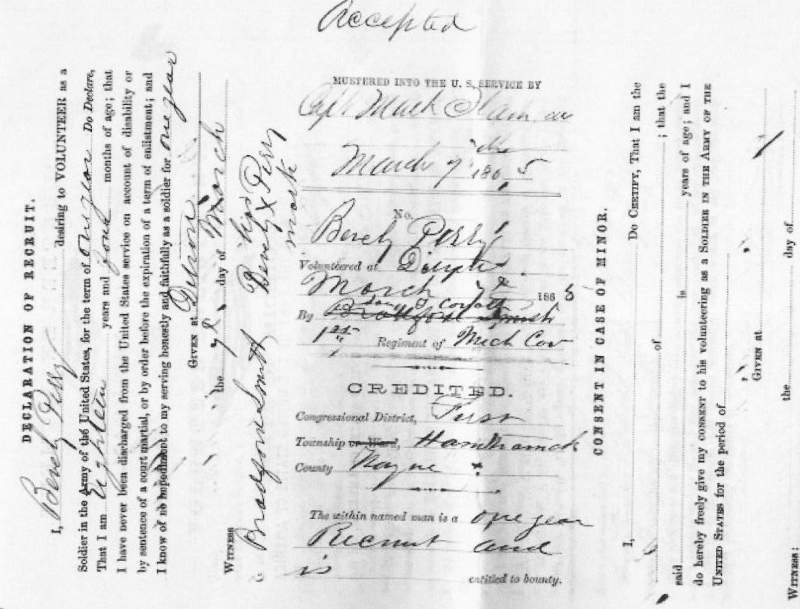 DECLARATION OF RECRUIT.
I, Benely Perry desiring to VOLUNTEER as a
Soldier in the Army of the United States, for the term of one year Do Declare,
That I am Eighteen years and four months of age; that
I have never been discharged from the United States service on account of disability or
by sentence of a court martial, or by order before the expiration of a term of enlistment; and
I know of no impediment to my serving honestly and faithfully as a soldier for one year
GIVEN at Detroit
the 7th day of March
his
Benely X Perry
mark
WITNESS
Bradford Smith
Accepted
MUSTERED INTO THE U. S. SERVICE BY
Capt Mark
March 7th 1865
No.
Benely Perry
Volunteered at Detroit
March 7th 1865
By
1st Regiment of Mich Cav
CREDITED.
Congressional District, First
Township or Ward, Hamtramck
County Wayne
The within named man is a one year
Recruit and
is entitled to bounty.
CONSENT IN CASE OF MINOR.
I, Do CERTIFY, That I am the
of ; that the
said is years of age; and I
do hereby freely give my CONSENT to his volunteering as a SOLDIER IN THE ARMY OF THE
UNITED STATES for the period of
GIVEN at
the day of
WITNESS: